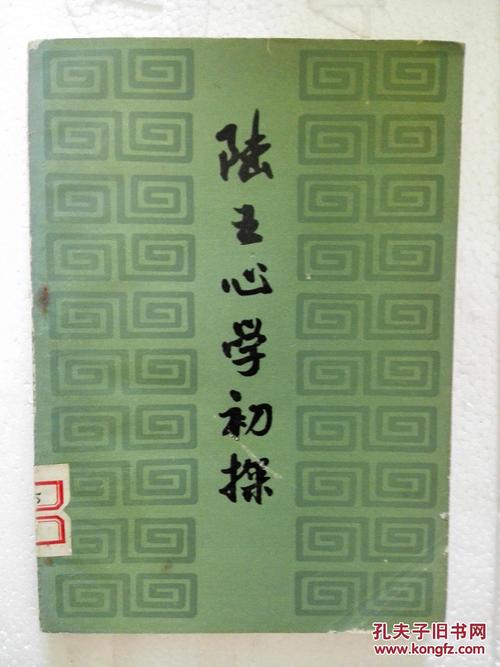 陆王心学初探
5
孔夫子旧书网
www.kongfz.com